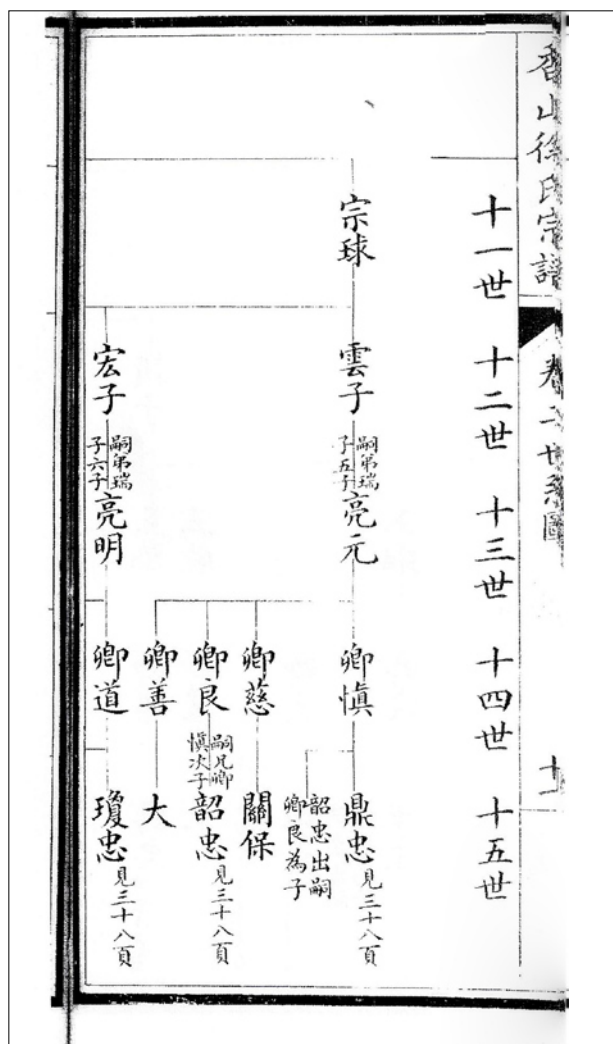 香山徐氏宗譜
卷二世系圖
十一
十一世
十二世
十三世
十四世
十五世
宗球
雲子
嗣弟瑞
子五子
亮元
卿慎
鼎忠
見三十八頁
韶忠出嗣
卿良為子
卿慈
關保
卿良
嗣兄卿
慎次子
韶忠
見三十八頁
卿善
大
宏子
嗣弟瑞
子六子
亮明
卿道
瓊忠
見三十八頁